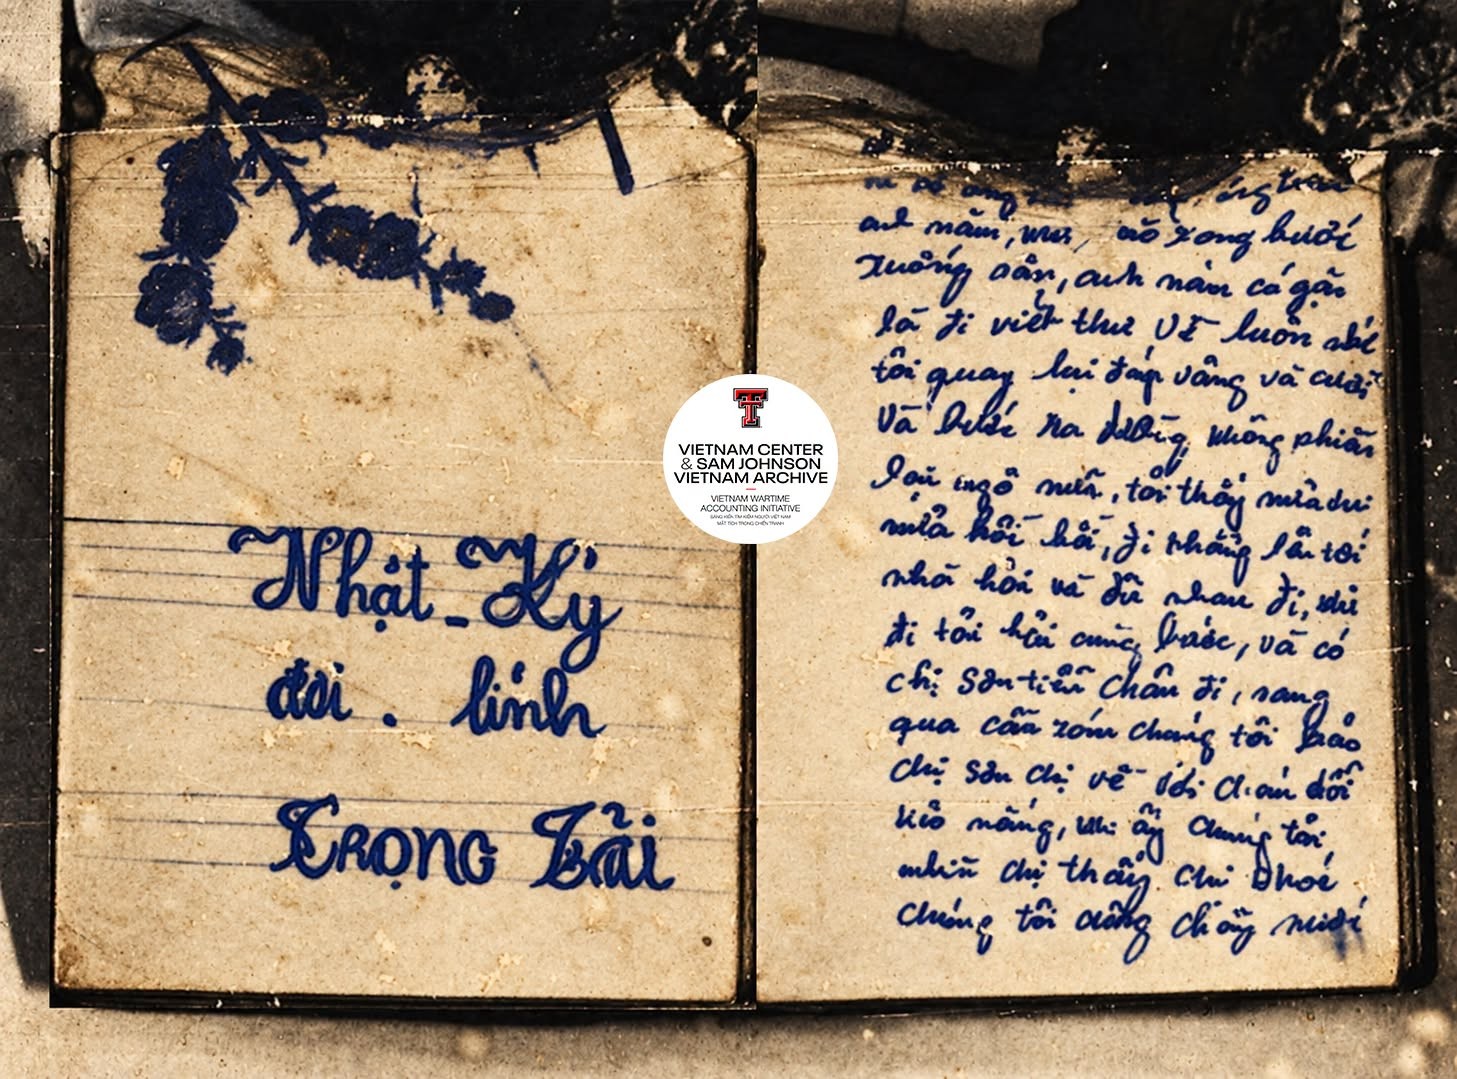 Nhật_Ký
đời . lính
Trọng Hải
VIETNAM CENTER
& SAM JOHNSON
VIETNAM ARCHIVE
VIETNAM WARTIME
ACCOUNTING INITIATIVE
SÁNG KIẾN TÌM KIẾM NGƯỜI VIỆT NAM
MẤT TÍCH TRONG CHIẾN TRANH
anh năm, xong bước
xuống sân, anh năm cố gắn
là đi viết thư về luôn nhé
tôi quay lại đáp vâng và cười
và bước ra đường, không phiền
lại ngô nữa, tôi thấy
mưa hối hả, đi thẳng lên tới
nhà hòa và đủ nhau đi, khi
đi tôi hồi cùng bước, và có
chị Sơn tiễn chân đi, sang
qua cầu xóm chúng tôi bảo
chị Sơn chị về đội
kẻo nắng, khi ấy chúng tôi
nhìn chị thấy chị khóc
chúng tôi cũng chảy nước